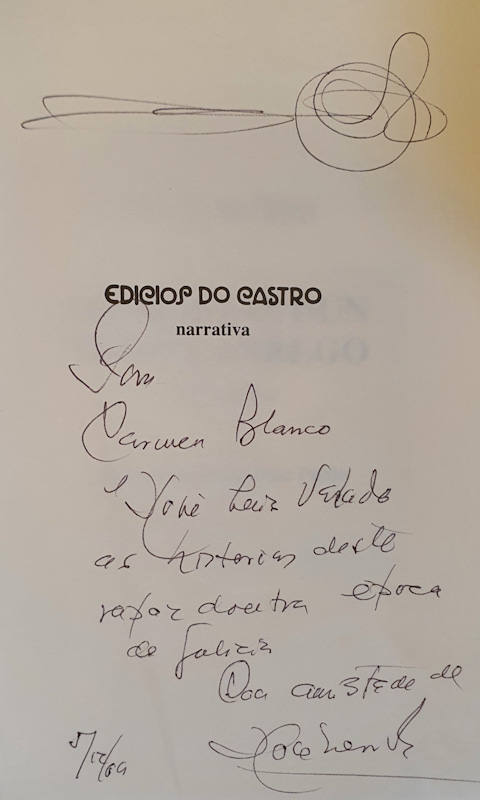 EDICIOS DO CASTRO
narrativa
Para
Carmen Blanco
e José Luis
as historias deste
rapaz doutra época
de Galicia
Coa amistade de